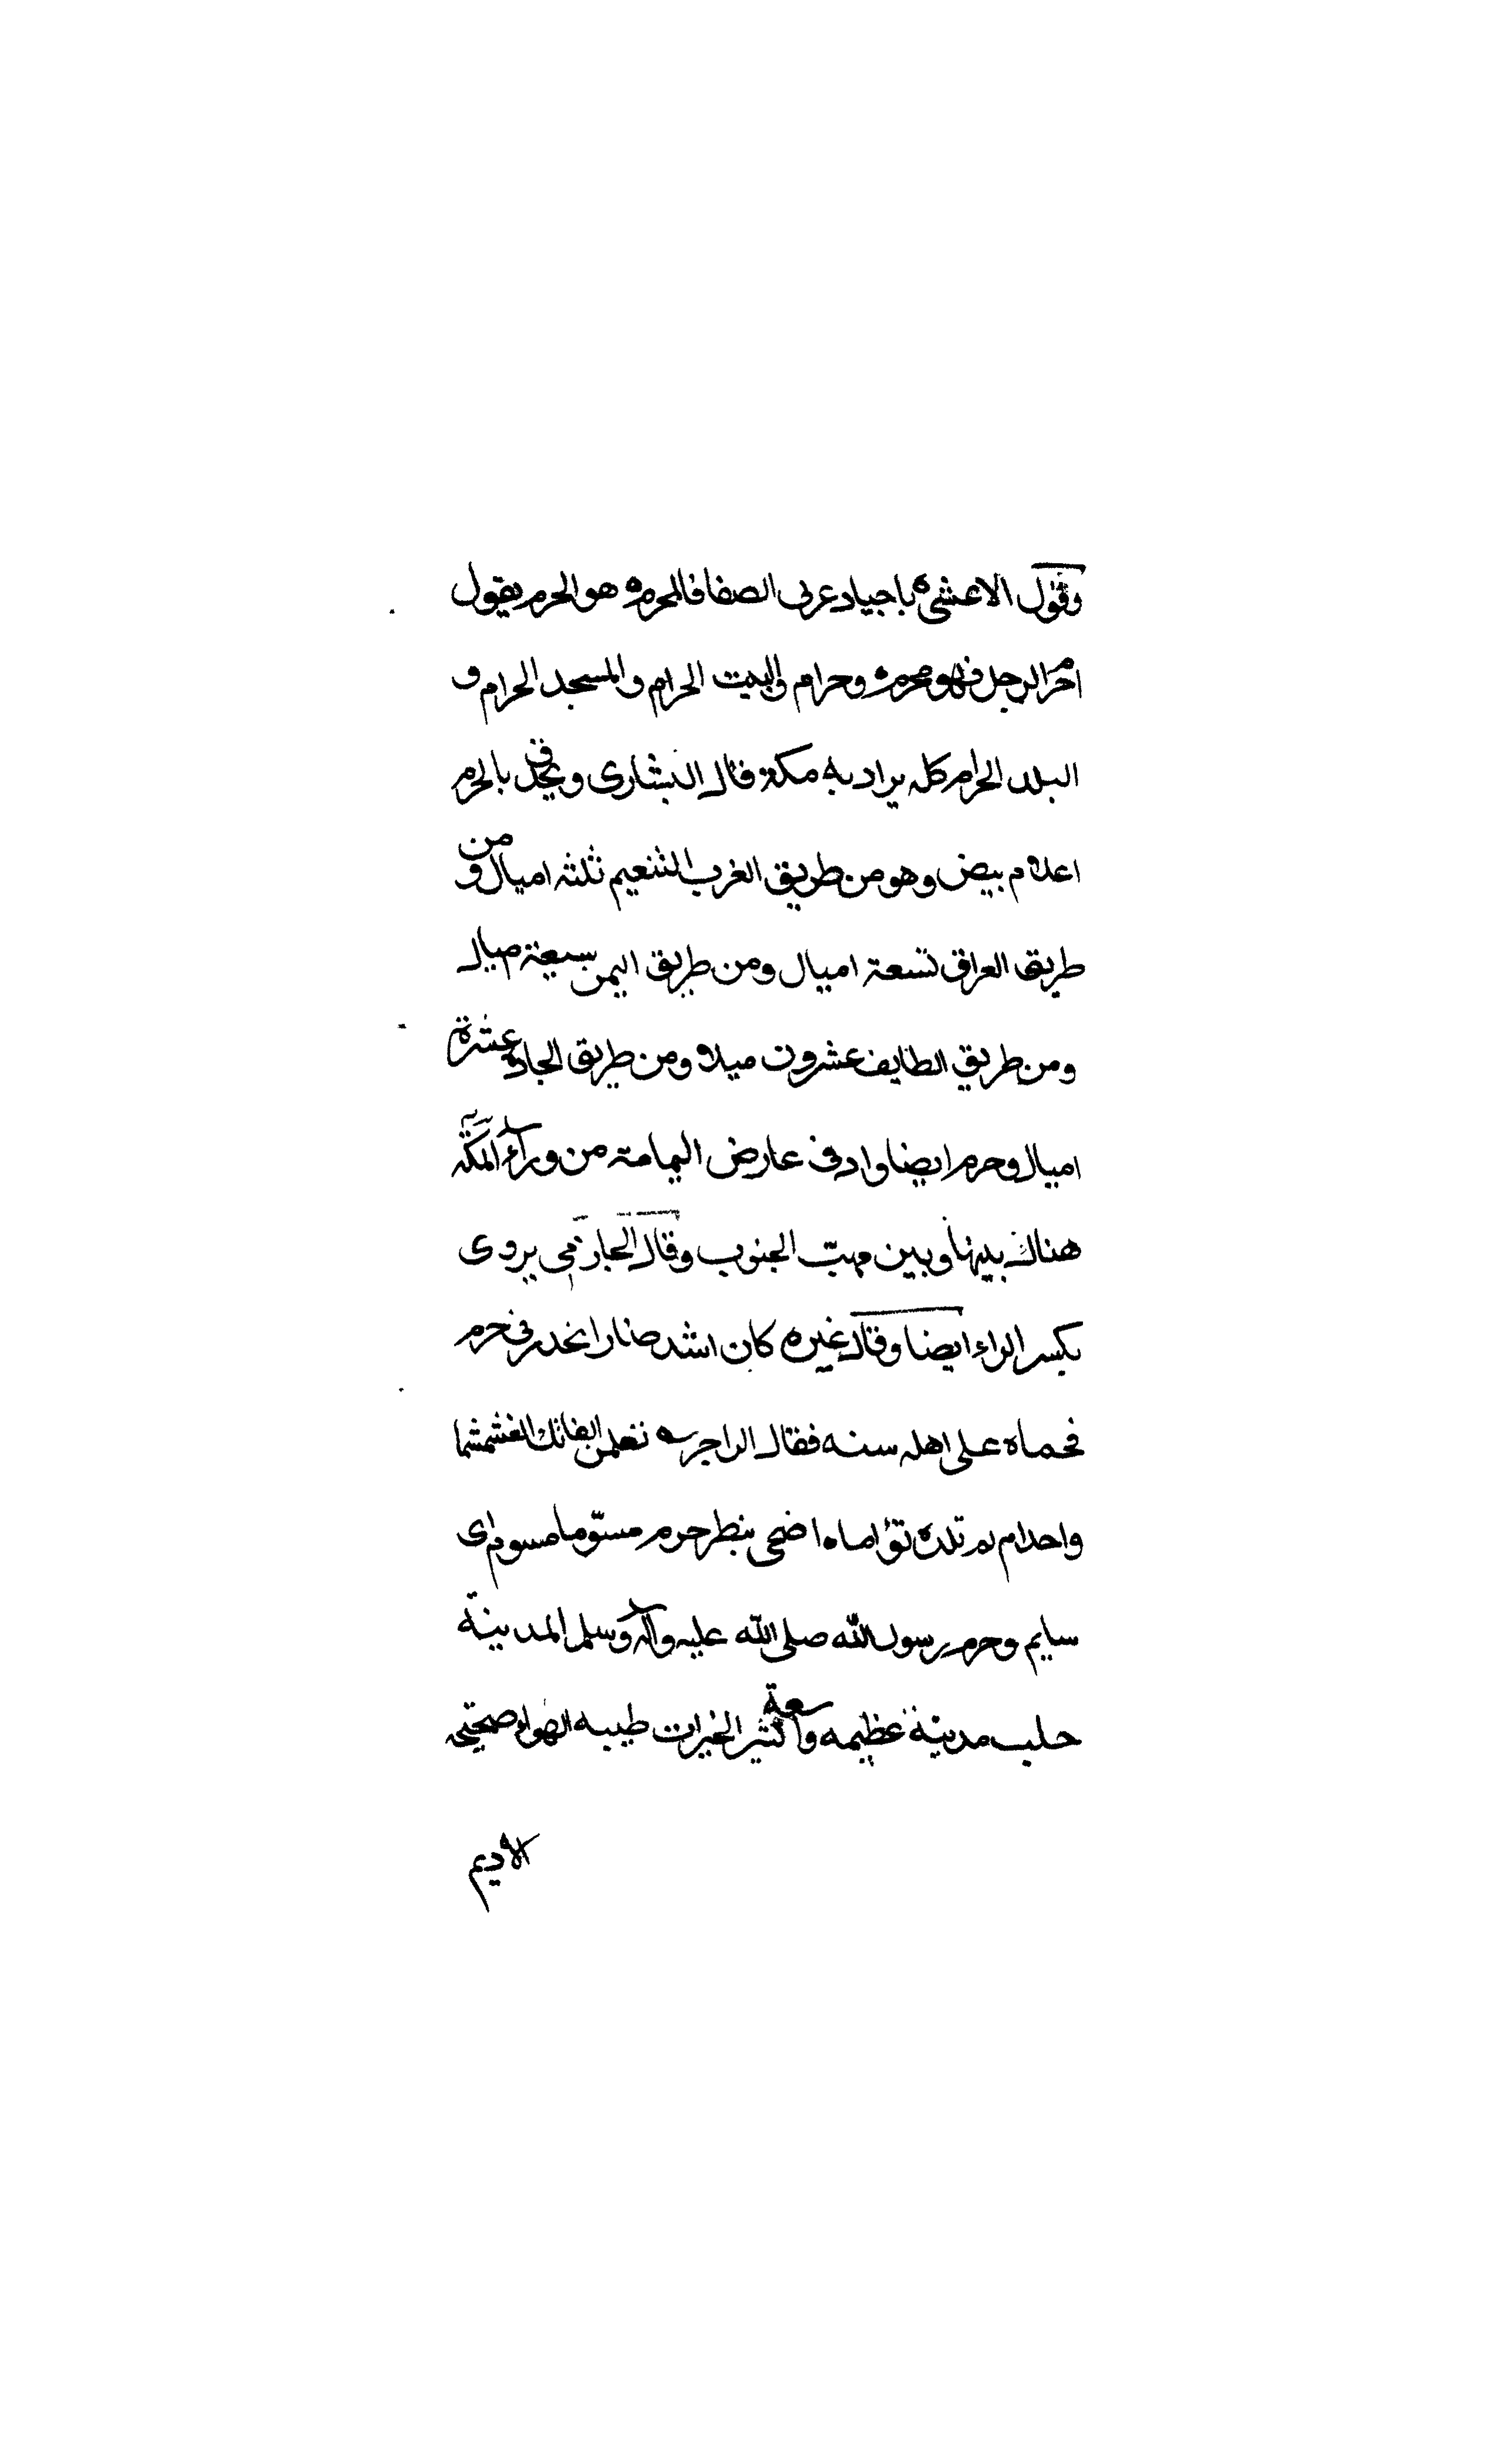 وقول الاعشى ه باجياد عربى الصفا فالمحرم ه هو الحرم يقول
احرم الرجل فهو محرم وحرام والبيت الحرام والمسجد الحرام و
البلد الحرام كله يراد به مكة قال البشارى ويحدق بالحرم
اعلام بيض وهو من طريق الغرب التنعيم ثلثه اميال ومن
طريق العراق تسعة اميال ومن طريق اليمن سبعة اميال
ومن طريق الطايف عشرون ميلا ومن طريق الجادة عشرة
اميال وحرم ايضا واد فى عارض اليمامة من ورآء اكمة
هناك بينها وبين مهبّ الجنوب وقال الحازمى يروى
بكسر الراء ايضا وقال غيره كان اسد ضار انحدر فى حرم
فحماه على اهله سنه فقال الراجز ه تعلمن الفاتك الغشمشما
واحد ام لم تلده تؤاما ه اضحى ببطن حرم مسوّما مسوم اى
سايم وحرم رسول الله صلى الله عليه وآله وسلم المدينة
حلب مدينة عظيمه واسعة كثير الخيرات طيبه الهواء صحيحه
الاديم